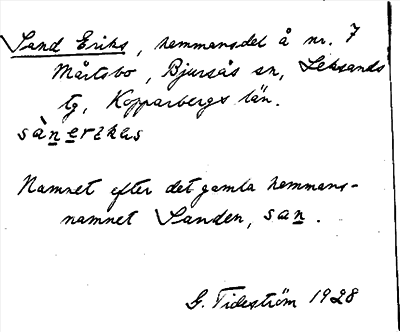 Sand Eriks, hemmansdel å nr. 7
Mårtsbo, Bjursås sn, Leksands
tg, Kopparbergs län.
sànerikas
Namnet efter det gamla hemmans-
namnet Sanden, san.
G. Tideström 1928